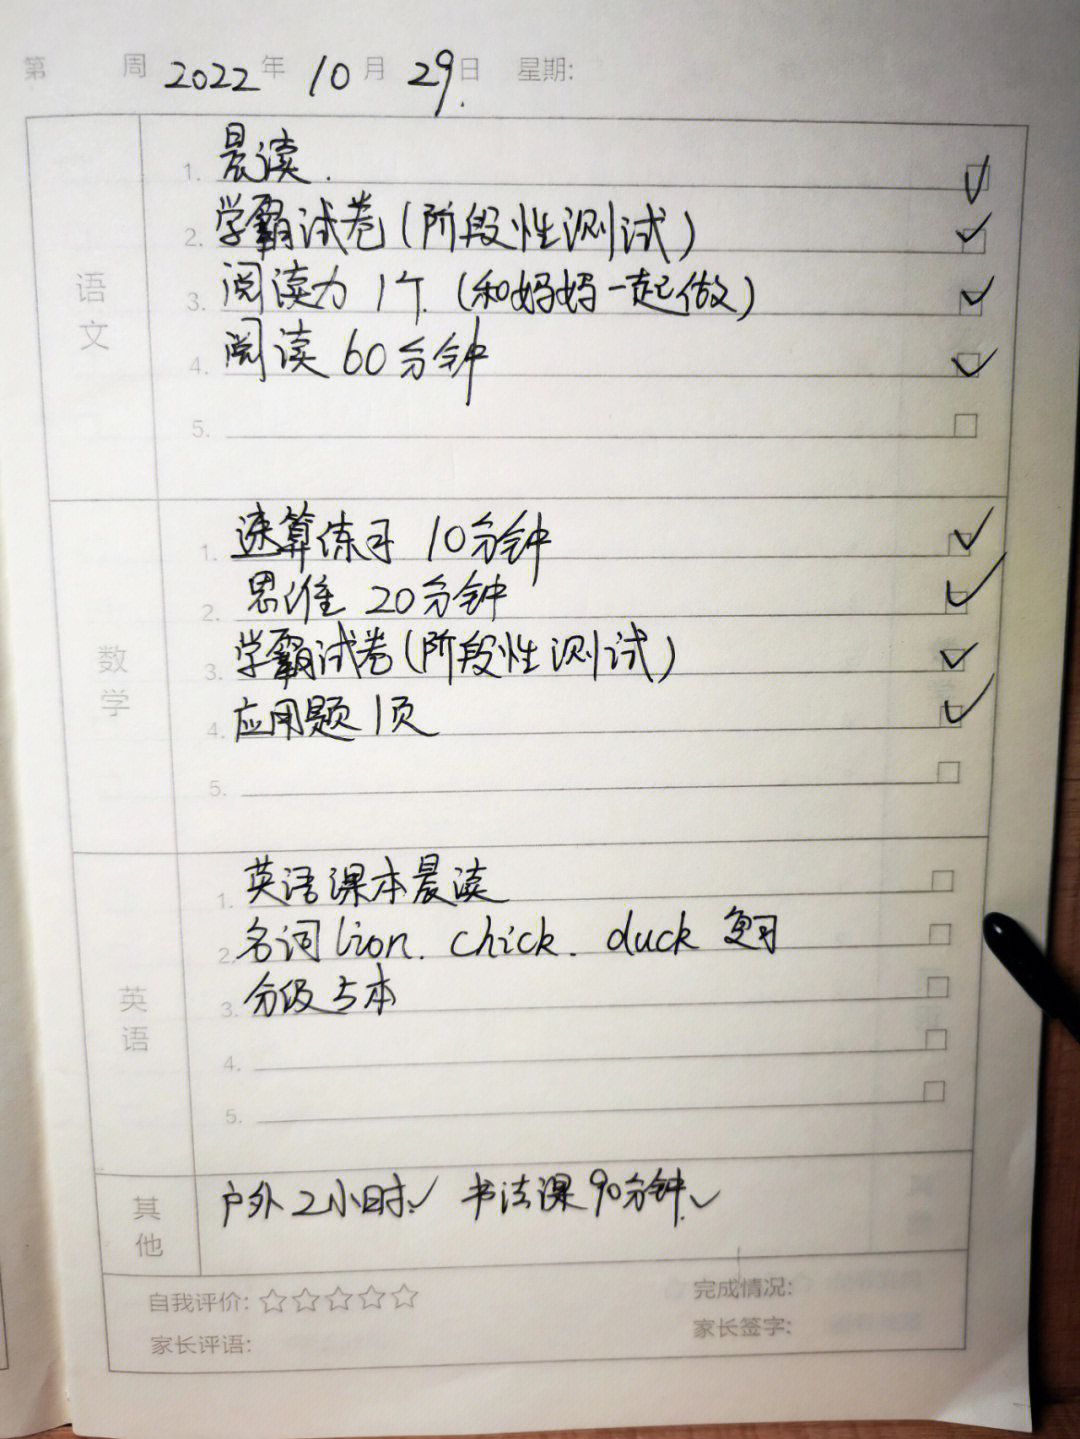 第 周 2022年 10月 29日 星期:
语文
1. 晨读.
2. 学霸试卷(阶段性测试)
3. 阅读力 1个.(和妈妈一起做)
4. 阅读 60分钟
5.
数学
1. 速算练习 10分钟
2. 思维 20分钟
3. 学霸试卷(阶段性测试)
4. 应用题 1页
5.
英语
1. 英语课本晨读
2. 名词 lion. chick. duck 复习
3. 分级5本
4.
5.
其他
户外2小时.✓ 书法课90分钟.✓
自我评价:☆☆☆☆☆ 完成情况:
家长评语: 家长签字: